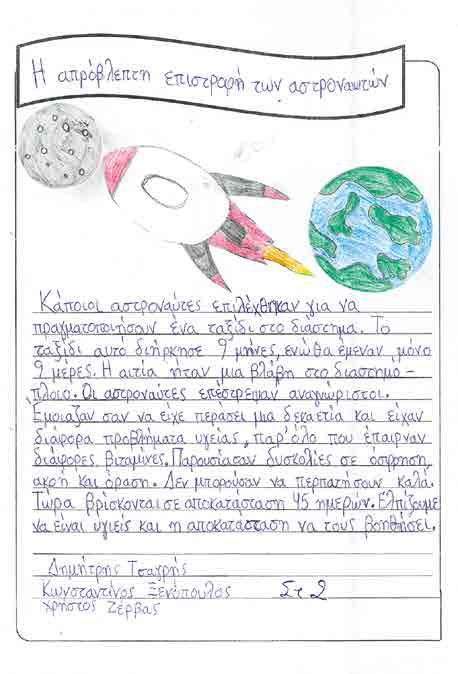 Η απρόβλεπτη επιστραφή των αστροναυτών
Κάποιοι αστροναύτες επιλέχθηκαν για να
πραγματοποιήσουν ένα ταξίδι στο διάστημα. Το
ταξίδι αυτό διήρκησε 9 μήνες, ενώ θα έμεναν μόνο
9 μέρες. Η αιτία ήταν μια βλάβη στο διαστημο-
πλοιο. Οι αστροναύτες επέστρεψαν αναγνώριστοι.
Έμοιαζαν σαν να είχε περάσει μια δεκαετία και είχαν
διάφορα προβλήματα υγείας, παρ'όλο που έπαιρναν
διάφορες βιταμίνες. Παρουσίασαν δυσκολίες σε όσφρηση,
ακοή και όραση. Δεν μπορούσαν να περπατήσουν καλά.
Τώρα βρίσκονται σε αποκατάσταση 45 ημερών. Ελπίζουμε
να είναι υγιείς και η αποκατάσταση να τους βοηθήσει.
Δημήτρης Τσαχρής
Κωνσταντίνος Ξενόπουλος Στ 2
Χρήστος Ζέρβας